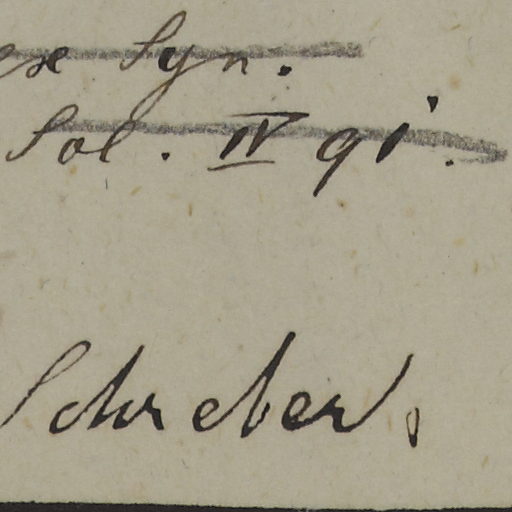 ex Syn.
Sol. IV 91.
Schreber.